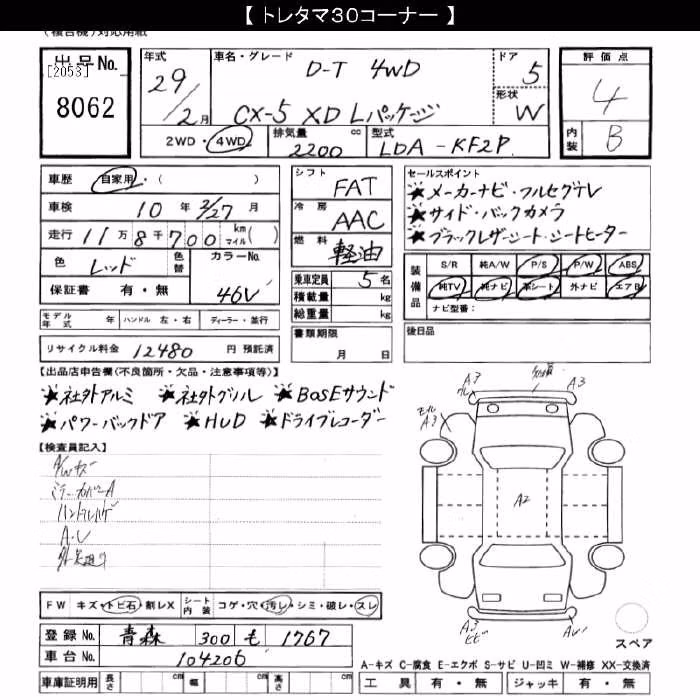 【 トレタマ30コーナー 】
(複合機)対応用紙
出品No. [2053] 8062
年式 29/2月
車名・グレード D-T 4WD
CX-5 XD Lパッケージ
ドア 5
形状 W
評価点 4
内装 B
2WD・4WD 排気量 2200 cc 型式 LDA-KF2P
車歴 自家用・( )
車検 10年 2/27月
走行 11万8千700 km マイル( )
色 レッド 色替 カラーNo. 46V
保証書 有・無
モデル年式 年 ハンドル 左・右 ディーラー・並行
リサイクル料金 12480 円 預託済
シフト FAT
冷房 AAC
燃料 軽油
乗車定員 5名
積載量 kg
総重量 kg
書類期限 月 日
セールスポイント
★メーカーナビ・フルセグTV
★サイド・バックカメラ
★ブラックレザーシート・シートヒーター
装備品 S/R 純A/W P/S P/W ABS
純TV 純ナビ 革シート 外ナビ エアB
ナビ型番:
後日品
【出品店申告欄(不良箇所・欠品・注意事項等)】
★社外アルミ ★社外グリル ★BOSEサウンド
★パワーバックドア ★HUD ★ドライブレコーダー
【検査員記入】
A/Wキズ
ミラーカバーA
A・U
A3 A3
A3
A2
A3
FW キズ・トビ石・割レX シート内装 コゲ・穴・汚レ・シミ・破レ・スレ
登録No. 青森 300 も 1767
車台No. 104206
車庫証明用 長さ cm 幅 cm 高さ cm
スペア
A-キズ C-腐食 E-エクボ S-サビ U-凹ミ W-補修 XX-交換済
工具 有・無 ジャッキ 有・無